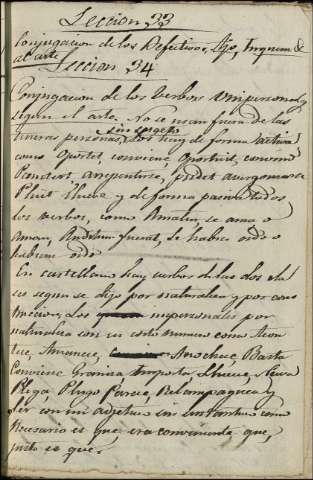 Leccion 33
Conjugacion de los Defectivos, Ajo, Inquam &
al arte
Leccion 34
Conjugacion de los verbos unipersonales
segun el arte. No se usan fuera de las
terceras personas, sin sugeto Los hay de forma activa
como Oportet, conviene Oportuit, convino
Penitet arrepentirse, pudet avergonzarse
Pluit llueve y de forma pasiva todos
los verbos, como Amatur, se ama o
aman, Auditum fuerat, se habia oido o
habian oido
En castellano hay verbos de las dos cla
ses segun se dijo por naturaleza y por cons
truccion. Los impersonales por
naturaleza son un corto numero como
Amanece, Anochece, Basta
Conviene Graniza Importa Llueve, Nieva
Plega Plugo Parece, Relampaguea y
Ser con un adjetivo como
Necesario es que era conveniente que,
justo es que.